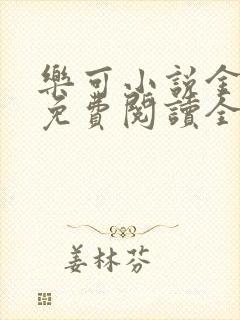 樂可小説全
免費閱讀全
姜林芬